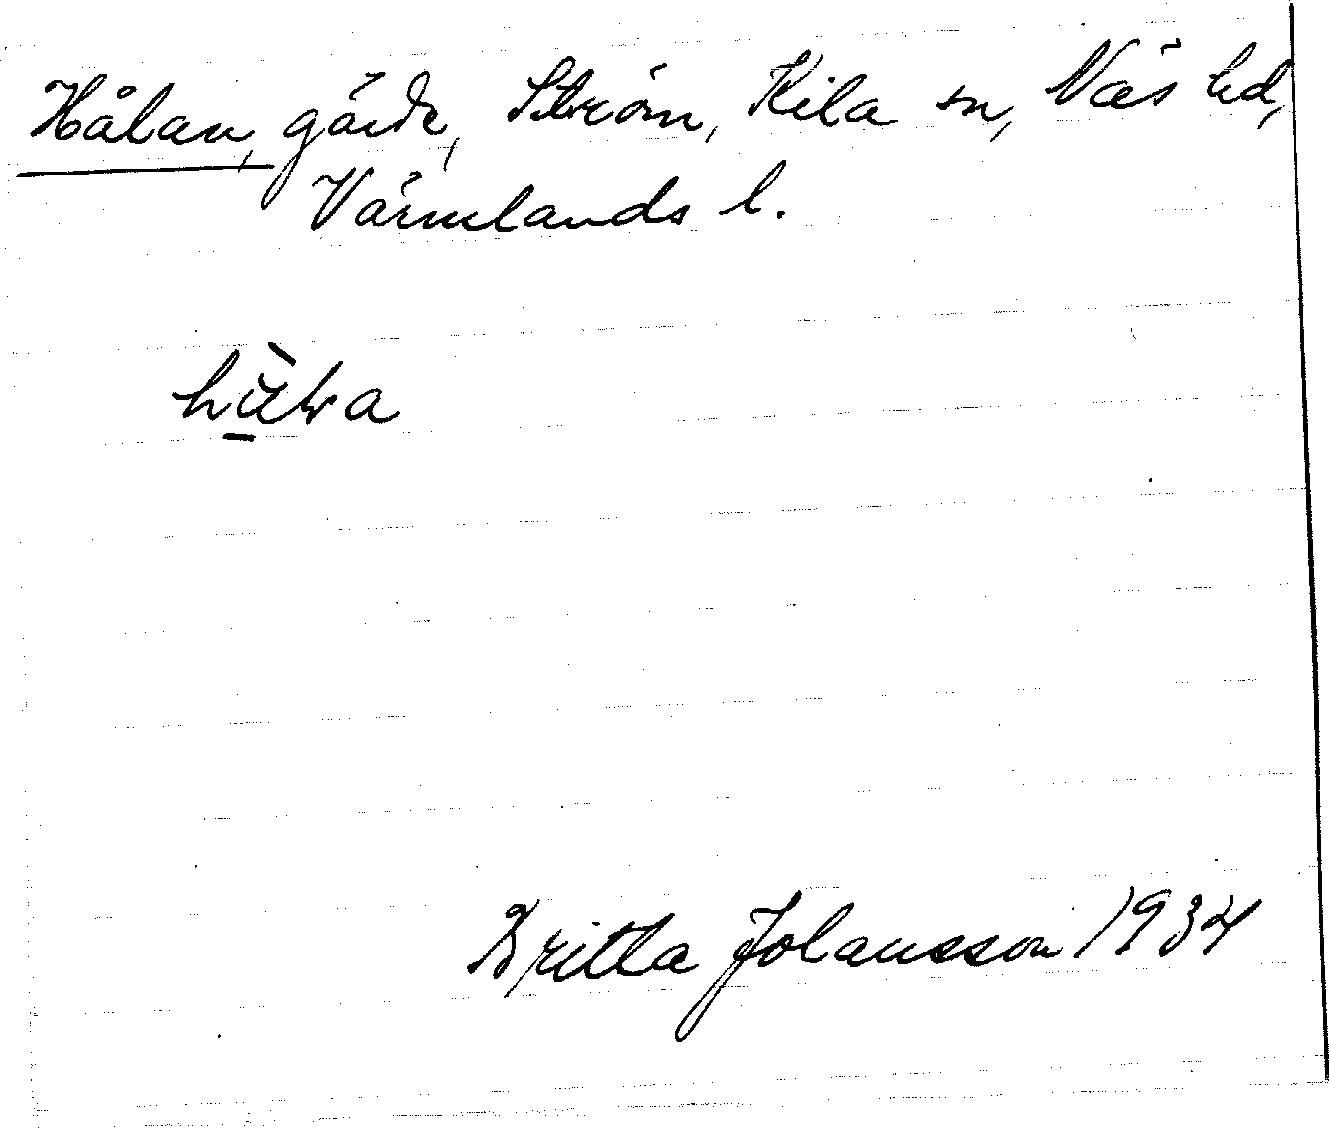 Hålan, gärde, Ström, Kila sn, Näs hd,
Värmlands l.
Britta Johansson 1934